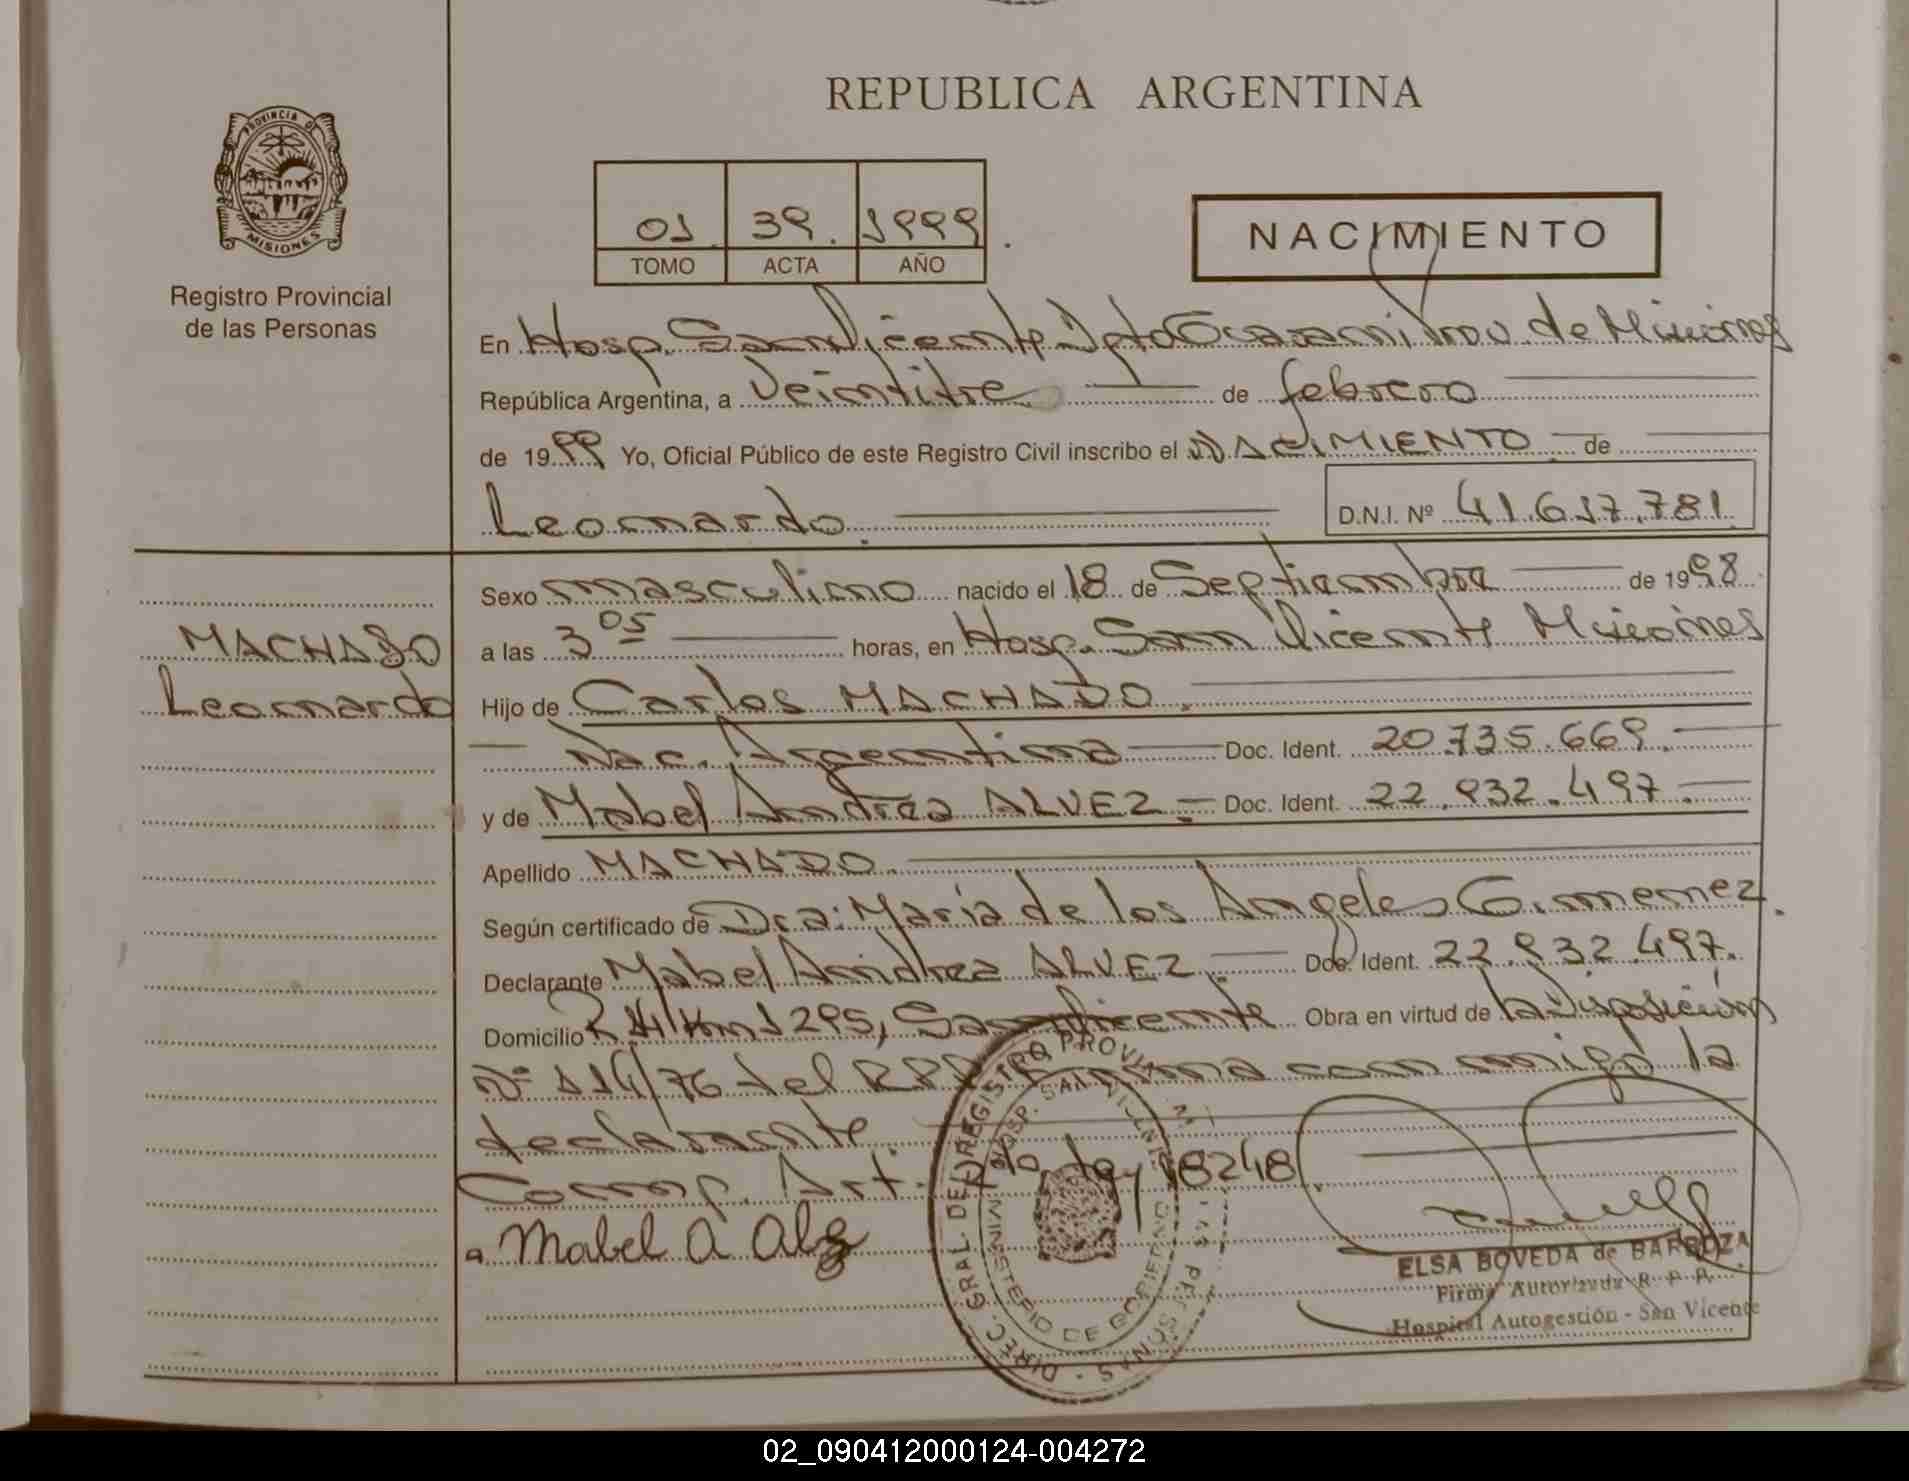 REPUBLICA ARGENTINA
PROVINCIA DE
MISIONES
Registro Provincial
de las Personas
01 39 1999
TOMO ACTA AÑO
NACIMIENTO
En Hosp. San Vicente Dpto Guaraní Prov. de Misiones
República Argentina, a Veintitre de febrero
de 1999 Yo, Oficial Público de este Registro Civil inscribo el NACIMIENTO de
Leonardo. D.N.I. Nº 41.617.781
Sexo masculino nacido el 18 de Septiembre de 1998
MACHADO
Leonardo
a las 3 05 horas, en Hosp. San Vicente Misiones
Hijo de Carlos MACHADO.
Nac. Argentina Doc. Ident. 20.735.669.
y de Mabel Andrea ALVEZ. Doc. Ident. 22.932.497.
Apellido MACHADO.
Según certificado de Dra: María de los Angeles Gimenez.
Declarante Mabel Andrea ALVEZ. Doc. Ident. 22.932.497.
Domicilio R 14 Km 1295, San Vicente Obra en virtud de la Disposición
Nº 114/76 del RPP. Firma con migo la
declarante
Comp. Art. 10 Ley 18248.
Mabel A
DIREC. GRAL DEL REGISTRO PROVINCIAL DE LAS PERSONAS
HOSP. SAN VICENTE
MINISTERIO DE GOBIERNO
ELSA BOVEDA de BARBOZA
Firma Autorizada R. P. P.
Hospital Autogestión - San Vicente
02_090412000124-004272